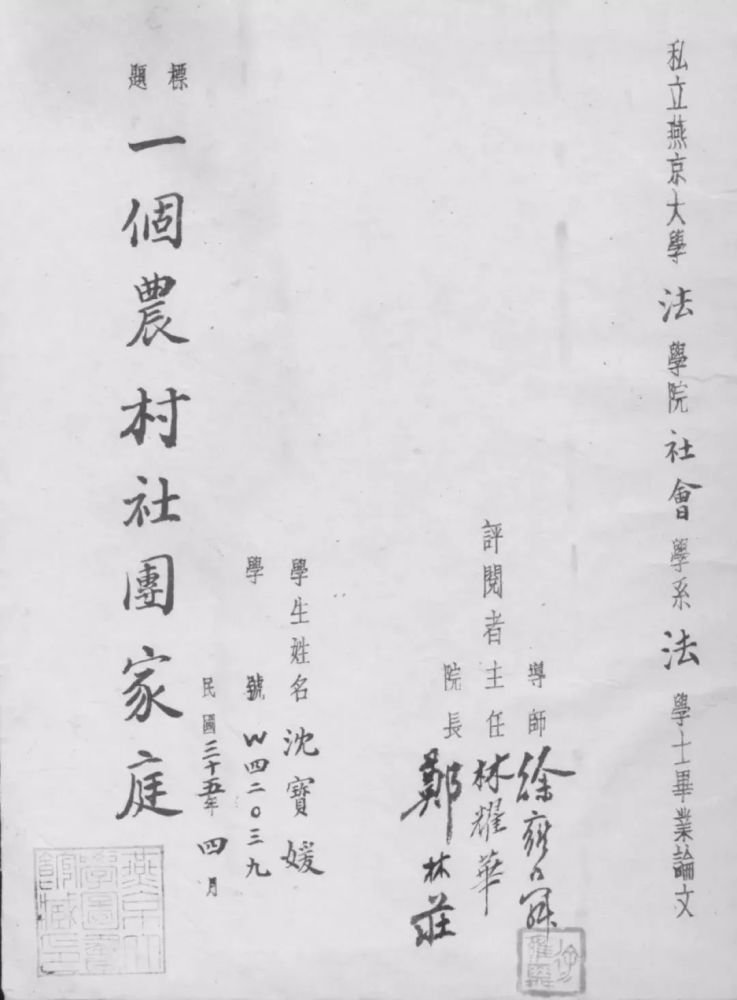 私立燕京大學 法 學院 社會 學系 法 學士畢業論文
導師 徐雍舜
評閱者 主任 林耀華
院長 鄭林莊
學生姓名 沈寶媛
學號 W四二〇三九
民國三十五年四月
標題 一個農村社團家庭
燕京大學圖書館藏印